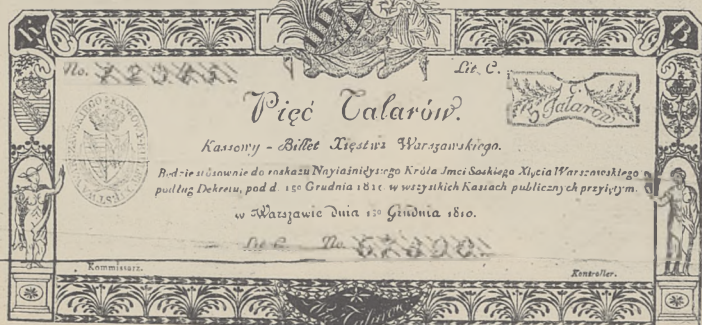 No. 12345.
Lit. C.
C.
5 Talarów
Pięć Talarów.
Kassowy-Billet Xięstwa Warszawskiego.
Będzie stósownie do roskazu Nayiaśniéyszego Króla Imci Saskiego Xięcia Warszawskiego
podług Dekretu, pod d. 1go Grudnia 1810. w wszystkich Kassach publicznych przyiętym.
w Warszawie dnia 1go Grudnia 1810.
Lit. C. No.
Kommissarz.
Kontroller.
Talarów